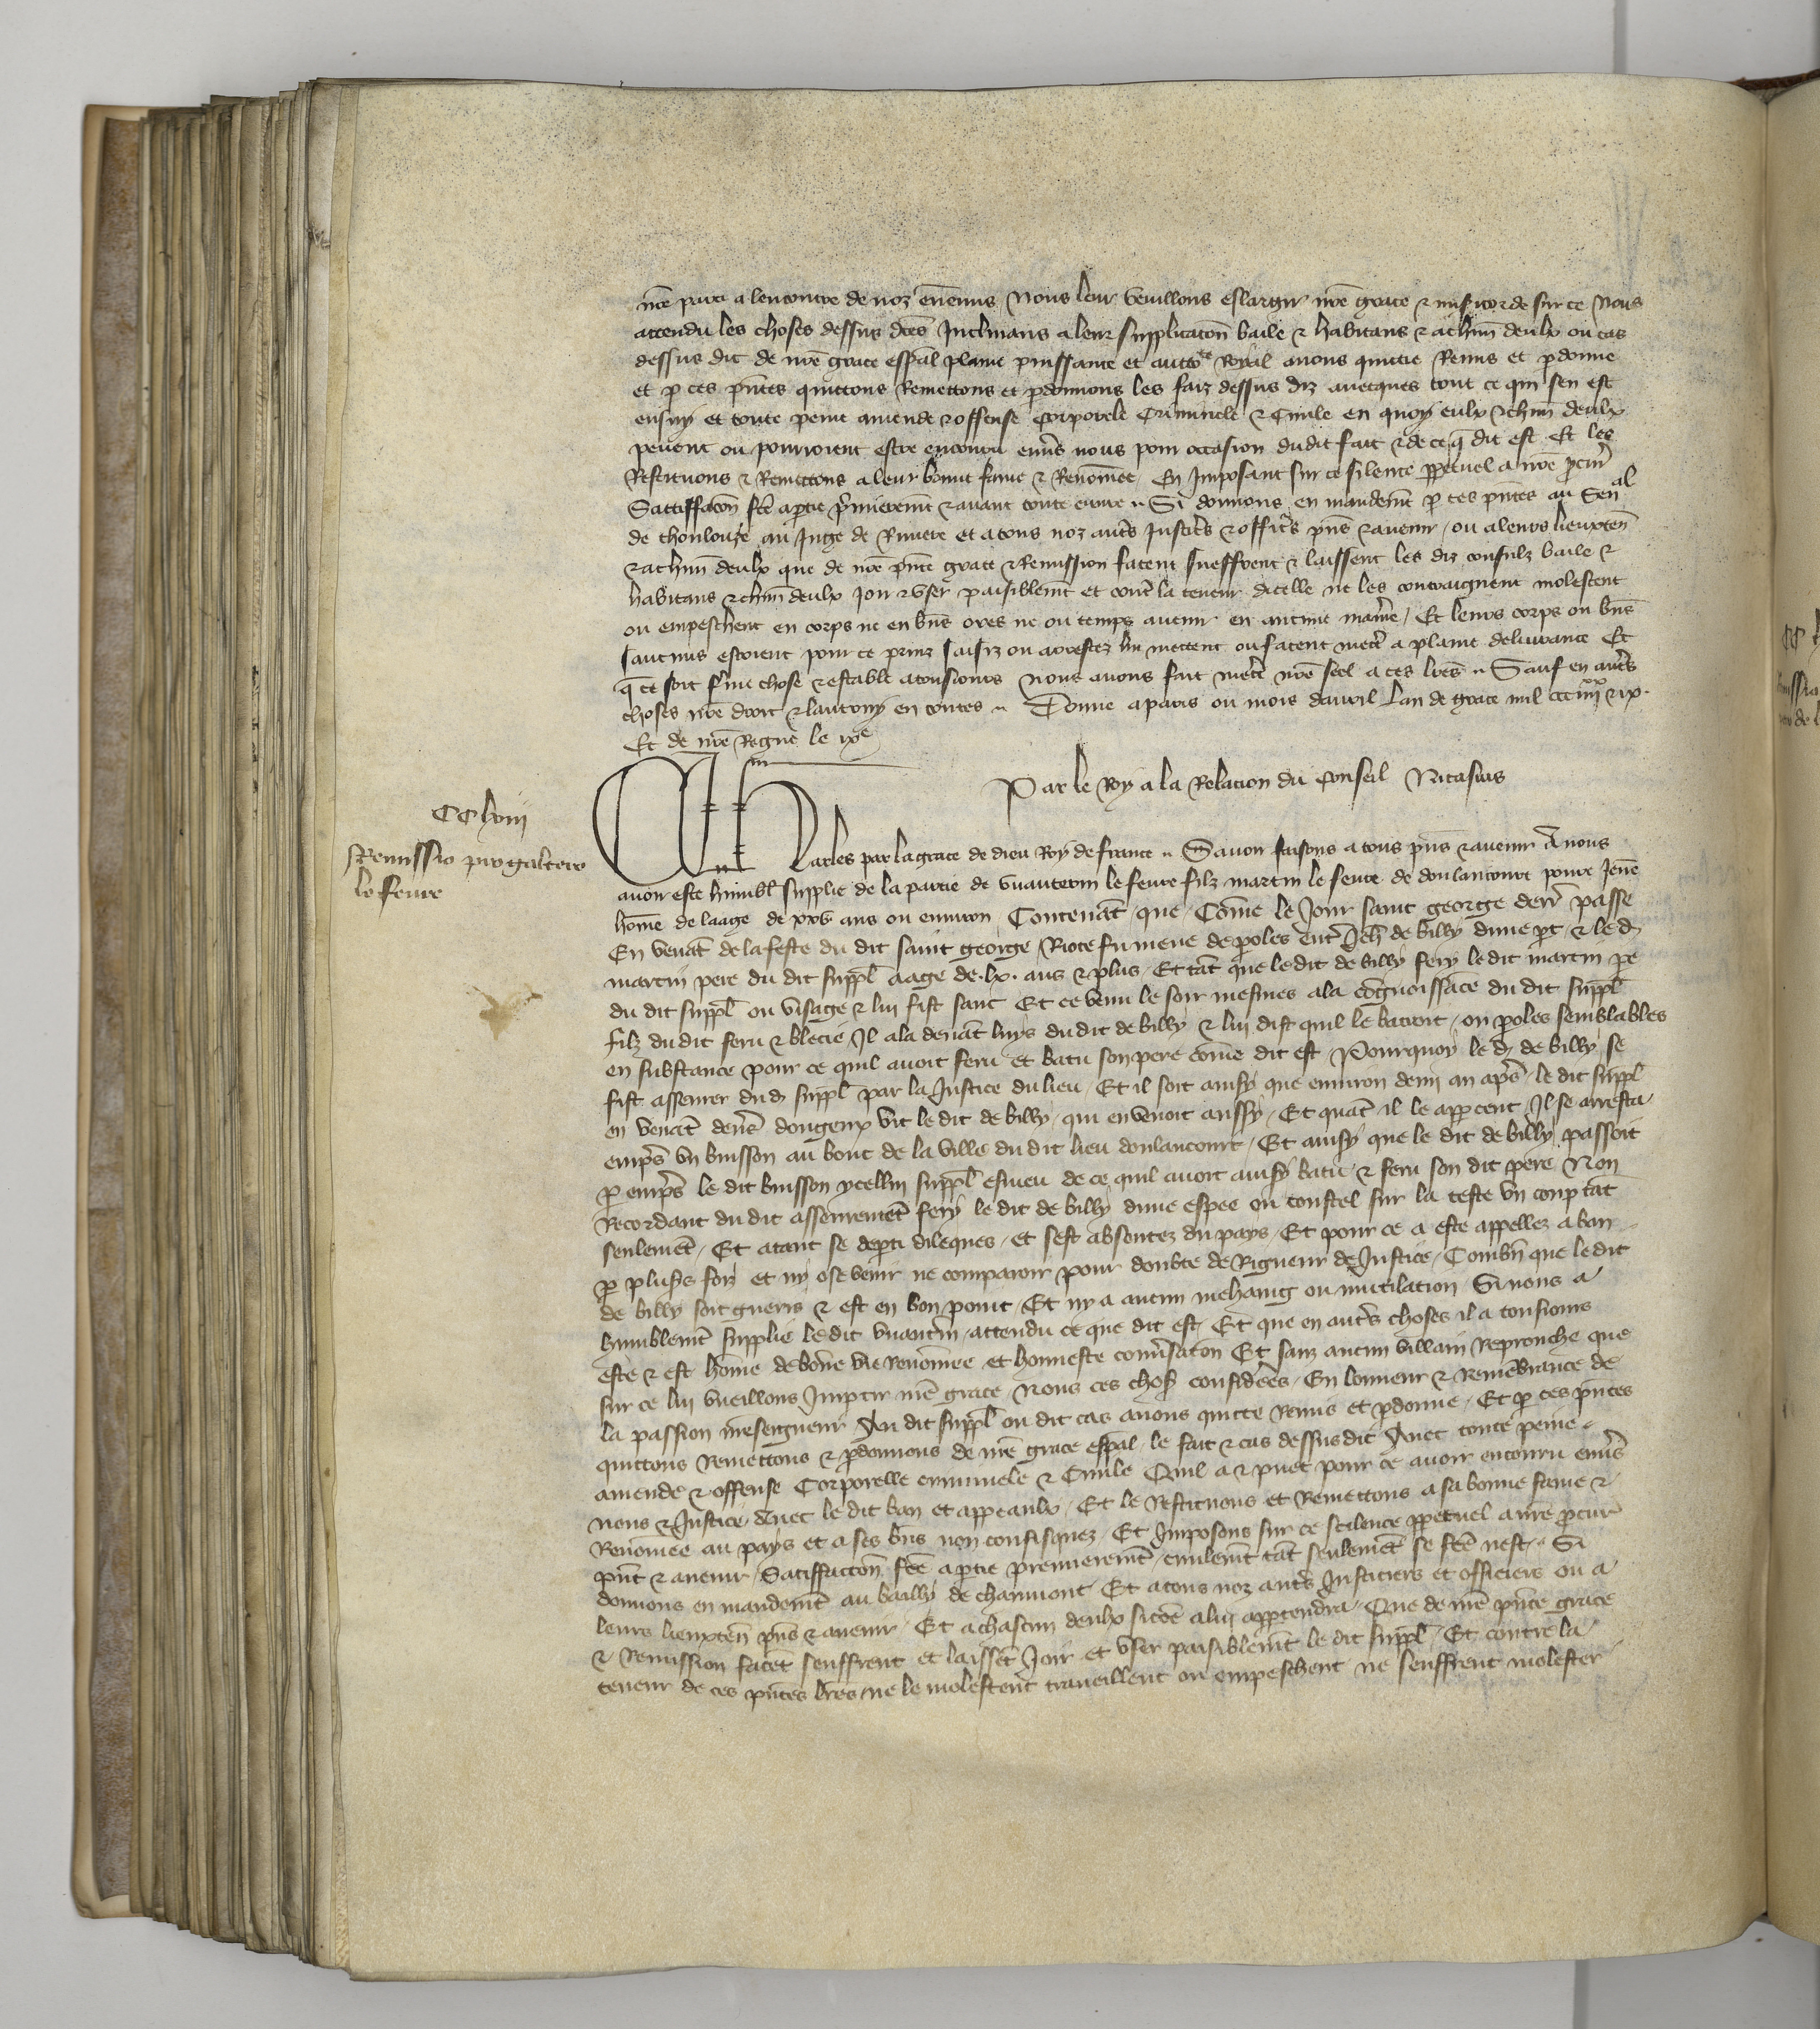 nre partie a lencontre de noz ennemis Nous leur veuillons eslargir nre grace & misicorde sur ce Nous
attendu les choses dessus dces Inclinans a leur supplicacon baile & habitans & a chun deulx ou cas
dessus dit de nre grace espal plaine puissance et aucto^te Royal avons quictie Remis et pdonne
et p ces pntes quictons Remettons et pdonnons les faiz dessus diz avecques tout ce qui sen est
ensuy et toute peine amende & offense Corporele Criminele & Civile en quoy eulx & chun deulx
pevent ou pourroient estre encouru envs nous pour occasion dudit fait & de ce q dit est Et les
Restituons & Remettons a leur bonne fame & Renommee En Imposant sur ce silence ppetuel a nre pcur
Satiffacon fcte a ptie primierement & avant toute euvre Si donnons en mandemt p ces pntes au Sen^al
de thoulouze au Juge de Riviere et a tous noz autres Justiciers & officiers pns & avenir ou a leurs lieuxten
& a chun deulx que de nre pnte grace & Remission facent sueffrent & laissent les diz consulz baile &
habitans & chun deulx Joir & user paisiblemt et contre la teneur dicelle ne les contraignent molestent
ou empeschent en corps ne en bns ores ne ou temps avenir en aucune maniere Et leurs corps ou bns
saucuns estoient pour ce prinz saisiz ou arrestez lui mettent ou facent mettre a plaine delivrance Et
q ce soit ferme chose & estable a tousiours nous avons fait mettre nre seel a ces lres Sauf en autres
choses nre droit & lautruy en toutes Donne a paris ou mois davril Lan de grace mil ccc iiii^xx & ix
Et de nre Regne le ix^e
Par le Roy a la Relacion du Conseil Nicasius
CClviii
Remissio pro galtero
le fevre
Charles par la grace de dieu Roy de france Savoir faisons a tous pns & avenir A nous
avoir este humbl supplie de la partie de vuauterin le fevre filz martin le fevre de doulancourt povre Jene
home de laage de xxv ans ou environ Contenat que Come le Jour saint george derr passe
En venat de la feste du dit saint george Riote fu meue de poles entre Jeh de billy dune pt & le d
martin pere du dit suppl aage de lx ans & plus Et tat que le dit de billy fery le dit martin pe
du dit suppl ou visage & lui fist sanc Et ce venu le soir mesmes a la cognoissace du dit suppl
filz du dit feru & blecie Il ala devat luys du dit de billy & lui dist quil le batroit ou poles semblables
en substance pour ce quil avoit feru et batu son pere come dit est Pourquoy le d de billy se
fist asseurer du d suppl par la Justice du lieu Et il soit ainsy que environ demi an apres le dit suppl
en venat devers dongeux vit le dit de billy qui en venoit aussy Et quat il le appcent Il se arresta
empres un buisson au bout de la ville du dit lieu doulancourt Et ainsy que le dit de billy passoit
p empres le dit buisson ycellui suppl esmeu de ce quil avoit ainsy batu & feru son dit pere Non
Recordant du dit asseuremet fery le dit de billy dune espee ou coustel sur la teste un coup tat
seulemet Et atant se depti dileques et sest absentez du pays Et pour ce a este appellez a ban
p plusrs foiz et ny ose venir ne comparoir pour doubte de Rigueur de Justice Combn que le dit
de billy soit gueris & est en bon point Et ny a aucun mehaing ou mutilation Si nous a
humblemt supplie le dit vuauterin attendu ce que dit est Et que en autres choses il a tousiours
este & est home de bone vie Renomee et honneste conversaton Et sanz aucun villain Reprouche que
sur ce lui vueillons Imptir nre grace Nous ces choses considerees En lonneur & Remebrance de
la passion nreseigneur Au dit suppl ou dit cas avons quicte Remis et pdonne Et p ces pntes
quittons Remettons & pdonnons de nre grace espal le fait & cas dessus dit Avec toute peine
amende & offense Corporelle criminele & Civile Quil a & puet pour ce avoir encouru envs
nous & Justice Avec le dit ban et appeaulx Et le Restituons et Remettons a sa bonne fame &
Renomee au pays et a ses bns non confisquez Et Imposons sur ce scilence ppetuel a nre pcur
pnt & avenir Satiffaction fcte a ptie premierement civilemt tat seulemet se fcte nest Si
donnons en mandemt au bailly de chaumont Et a tous noz autres Justiciers et officiers ou a
leurs lieuxten pns & avenir Et a chascun deulx si come a lui apptendra Que de nre pnte grace
& Remission facet seuffrent et laisset Joir et user paisiblemt le dit suppl Et contre la
teneur de ces pntes lres ne le molestent traveillent ou empeschent ne seuffrent molester